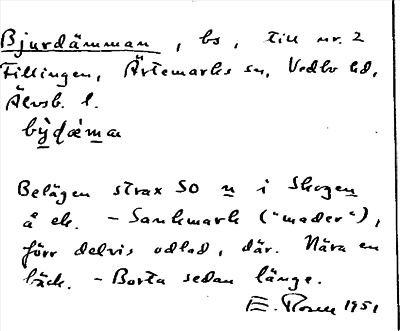 Bjurdämman, bs, till nr. 2
Fillingen, Ärtemarks sn, Vedbo hd,
Älvsb. l.
by̆ḍæ̀ma
Belägen strax SO n i skogen
å ek. – Sankmark ("mader"),
förr delvis odlad, där. Nära en
bäck. – Borta sedan länge.
E. Rosen 1951